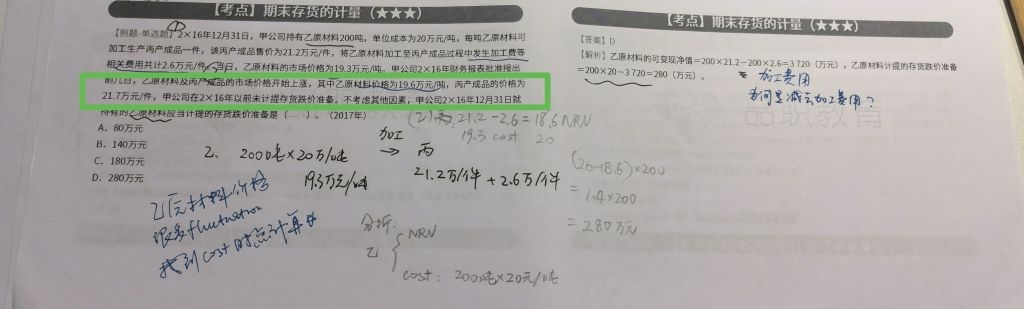 【考点】期末存货的计量（★★★）
【例题-单选题】2×16年12月31日，甲公司持有乙原材料200吨，单位成本为20万元/吨，每吨乙原材料可
加工生产丙产成品一件，该丙产成品售价为21.2万元/件，将乙原材料加工至丙产成品过程中发生加工费等
相关费用共计2.6万元/件，当日，乙原材料的市场价格为19.3万元/吨。甲公司2×16年财务报表批准报出
前几日，乙原材料及丙产成品的市场价格开始上涨，其中乙原材料价格为19.6万元/吨，丙产成品的价格为
21.7万元/件，甲公司在2×16年以前未计提存货跌价准备。不考虑其他因素，甲公司2×16年12月31日就
持有的乙原材料应当计提的存货跌价准备是（ ）。（2017年）
A. 80万元
B. 140万元
C. 180万元
D. 280万元
21.2-2.6=18.6 NRN
19.3 cost 20
加工
乙. 200吨×20万/吨 → 丙
19.3万元/吨 21.2万/件 + 2.6万/件
乙原材料价格
很多fluctuation
找到cost时点计算
分析:
乙 NRN
cost: 200吨×20元/吨
【考点】期末存货的计量（★★★）
【答案】D
【解析】乙原材料的可变现净值=200×21.2-200×2.6=3 720（万元），乙原材料计提的存货跌价准备
=200×20-3 720=280（万元）。
加工费用
为何是减去加工费用？
品职教育
(20-18.6)×200
= 1.4×200
= 280万元